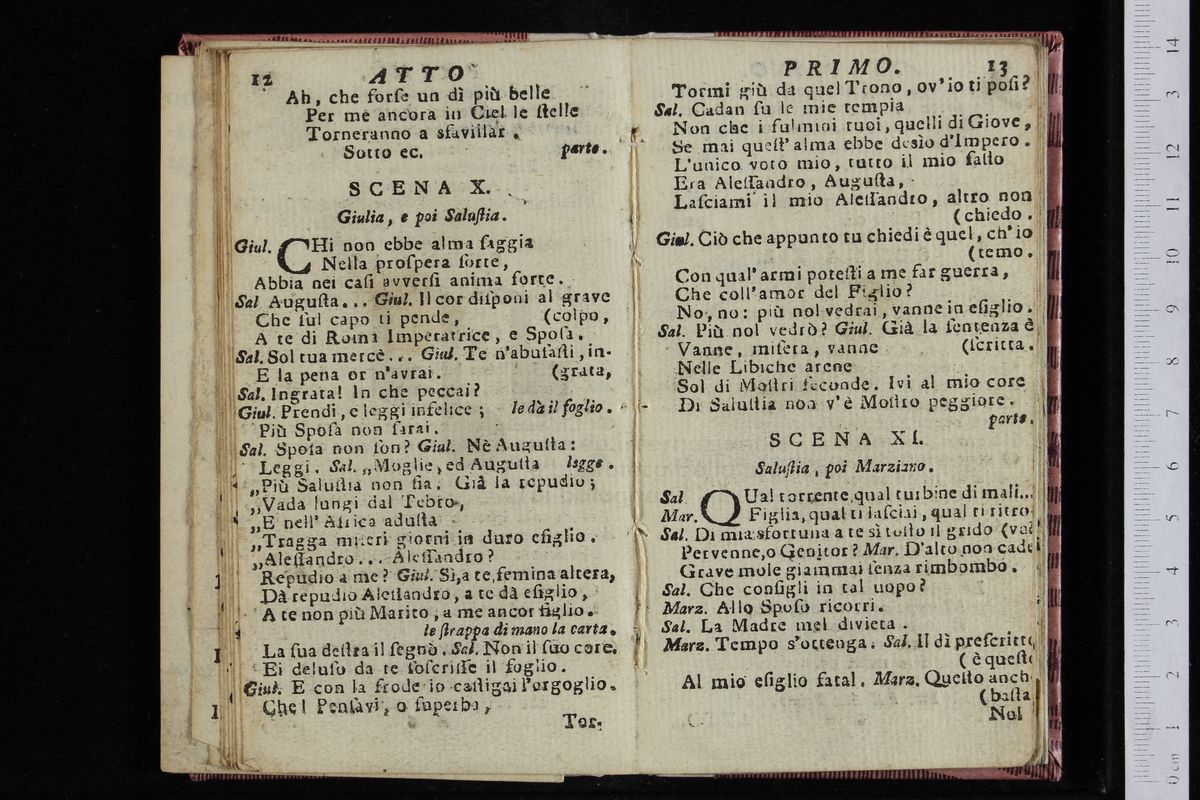 12 ATTO
Ah, che forſe un dì più belle
Per me ancora in Ciel le ſtelle
Torneranno a sfavillar.
Sotto ec. parte.
SCENA X.
Giulia, e poi Saluſtia.
Giul. CHi non ebbe alma ſaggia
Nella proſpera ſorte,
Abbia nei caſi avverſi anima forte.
Sal Auguſta... Giul. Il cor diſponi al grave
Che ſul capo ti pende, (colpo,
A te di Roma Imperatrice, e Spoſa.
Sal. Sol tua mercè... Giul. Te n'abuſaſti, in-
E la pena or n'avrai. (grata,
Sal. Ingrata! In che peccai?
Giul. Prendi, e leggi infelice; le dà il foglio.
Più Spoſa non ſarai.
Sal. Spoſa non ſon? Giul. Nè Auguſta:
Leggi. Sal. „Moglie, ed Auguſta legge.
„Più Saluſtia non ſia. Già la repudio;
„Vada lungi dal Tebro,
„E nell' Africa aduſta
„Tragga miſeri giorni in duro eſiglio.
„Aleſſandro... Aleſſandro?
Repudio a me? Giul. Sì, a te, femina altera,
Dà repudio Aleſſandro, a te dà eſiglio,
A te non più Marito, a me ancor figlio.
le ſtrappa di mano la carta.
La ſua deſtra il ſegnò. Sal. Non il ſuo core.
Ei deluſo da te ſoſcriſſe il foglio.
Giul. E con la frode io caſtigai l'orgoglio.
Che! Penſavi, o ſuperba,
Tor-
PRIMO. 13
Tormi giù da quel Trono, ov'io ti poſi?
Sal. Cadan ſu le mie tempia
Non che i fulmini tuoi, quelli di Giove,
Se mai queſt' alma ebbe desìo d'Impero.
L'unico voto mio, tutto il mio faſto
Era Aleſſandro, Auguſta,
Laſciami il mio Aleſſandro, altro non
(chiedo.
Giul. Ciò che appunto tu chiedi è quel, ch'io
(temo.
Con qual' armi poteſti a me far guerra,
Che coll'amor del Figlio?
No, no: più nol vedrai, vanne in eſiglio.
Sal. Più nol vedrò? Giul. Già la ſentenza è
Vanne, miſera, vanne (ſcritta.
Nelle Libiche arene
Sol di Moſtri feconde. Ivi al mio core
Di Saluſtia non v'è Moſtro peggiore.
parte.
SCENA XI.
Saluſtia, poi Marziano.
Sal QUal torrente, qual turbine di mali...
Mar. Figlia, qual ti laſciai, qual ti ritro
Sal. Di mia sfortuna a te sì toſto il grido (vo?
Pervenne, o Genitor? Mar. D'alto non cade
Grave mole giammai ſenza rimbombo.
Sal. Che conſigli in tal uopo?
Marz. Allo Spoſo ricorri.
Sal. La Madre mel divieta.
Marz. Tempo s'ottenga. Sal. Il dì preſcritto
(è queſto
Al mio eſiglio fatal. Marz. Queſto anch
(baſta
Nol